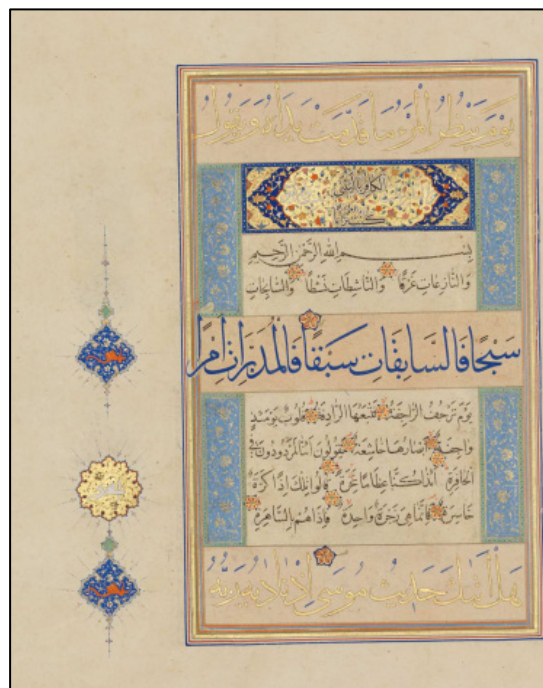 يَوْمَ يَنْظُرُ الْمَرْءُ مَا قَدَّمَتْ يَدَاهُ وَيَقُولُ
الْكَافِرُ يَا لَيْتَنِي
كُنْتُ تُرَابًا
بِسْمِ اللهِ الرَّحْمٰنِ الرَّحِيمِ
وَالنَّازِعَاتِ غَرْقًا وَالنَّاشِطَاتِ نَشْطًا وَالسَّابِحَاتِ
سَبْحًا فَالسَّابِقَاتِ سَبْقًا فَالْمُدَبِّرَاتِ أَمْرًا
يَوْمَ تَرْجُفُ الرَّاجِفَةُ تَتْبَعُهَا الرَّادِفَةُ قُلُوبٌ يَوْمَئِذٍ
وَاجِفَةٌ أَبْصَارُهَا خَاشِعَةٌ يَقُولُونَ أَئِنَّا لَمَرْدُودُونَ فِي
الْحَافِرَةِ أَئِذَا كُنَّا عِظَامًا نَخِرَةً قَالُوا تِلْكَ إِذًا كَرَّةٌ
خَاسِرَةٌ فَإِنَّمَا هِيَ زَجْرَةٌ وَاحِدَةٌ فَإِذَا هُمْ بِالسَّاهِرَةِ
هَلْ أَتٰىكَ حَدِيثُ مُوسٰى إِذْ نَادٰىهُ رَبُّهُ